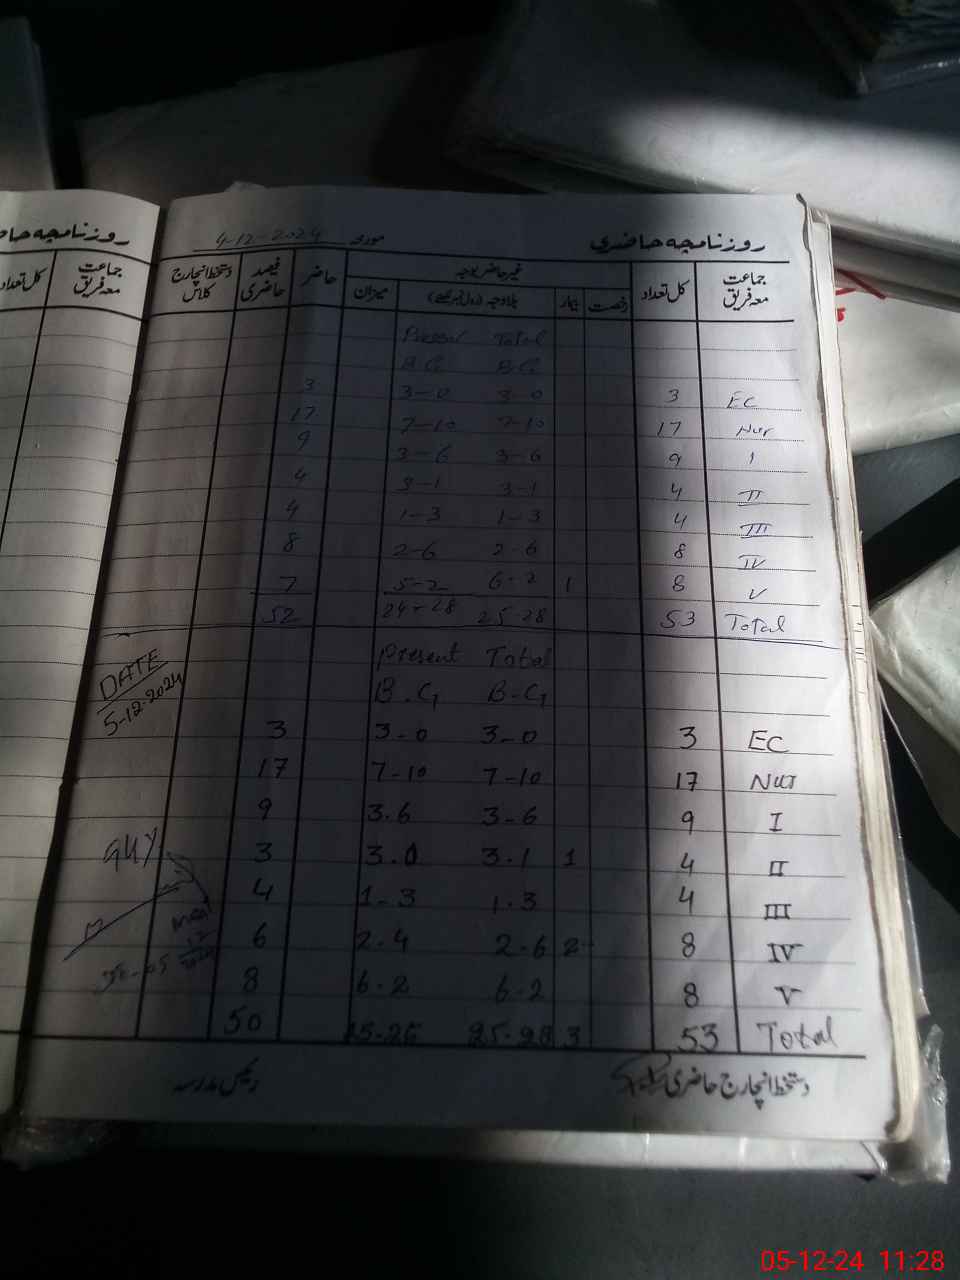 روزنامچہ حاضری مورخہ 4-12-2024
جماعت معہ فریق کل تعداد غیر حاضر بوجہ حاضر فیصد حاضری دستخط انچارج کلاس
رخصت بیمار بلاوجہ (رول نمبر لکھیے) میزان
Present Total
B G B G
3 3-0 3-0 3 EC
17 7-10 7-10 17 Nur
9 3-6 3-6 9 I
4 3-1 3-1 4 II
4 1-3 1-3 4 III
8 2-6 2-6 8 IV
7 5-2 6-2 1 8 V
52 24-28 25-28 53 Total
DATE
5-12-2024
Present Total
B.G B-G
3 3-0 3-0 3 EC
17 7-10 7-10 17 Nur
9 3.6 3-6 9 I
3 3.0 3.1 1 4 II
4 1-3 1.3 4 III
6 2.4 2.6 2 8 IV
8 6.2 6.2 8 V
50 25-25 25-28 3 53 Total
دستخط انچارج حاضری رئیس مدرسہ
روزنامچہ
جماعت معہ فریق کل تعداد
05-12-24 11:28